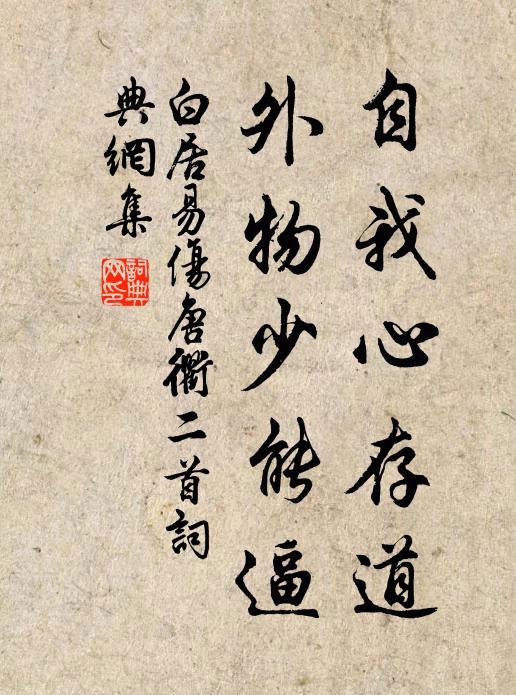 自我心存道
外物少能逼
白居易傷唐衢二首詞
典網集
詞典网印